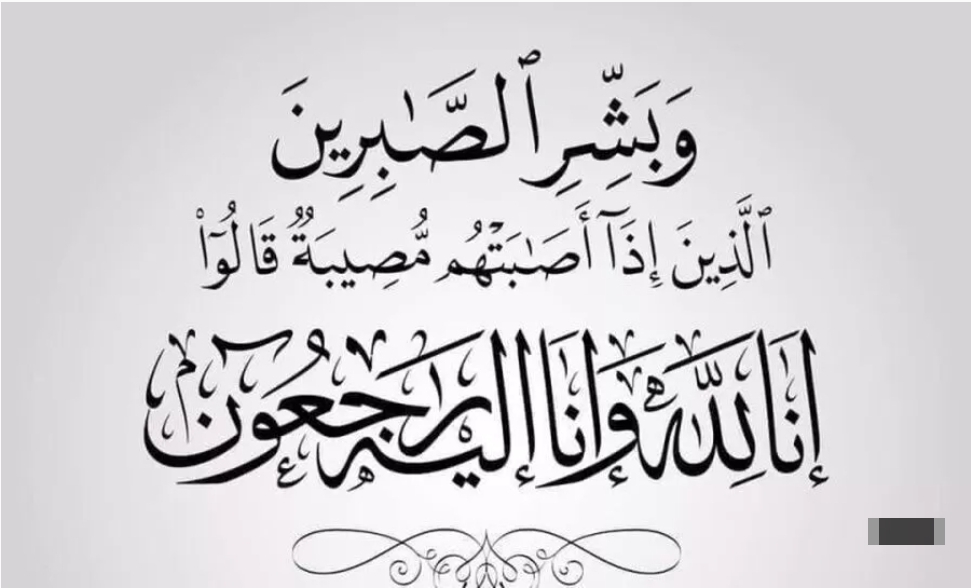 وَبَشِّرِ ٱلصَّٰبِرِينَ
ٱلَّذِينَ إِذَآ أَصَٰبَتْهُم مُّصِيبَةٌ قَالُوٓا۟
إِنَّا لِلَّهِ وَإِنَّا إِلَيْهِ رَٰجِعُونَ